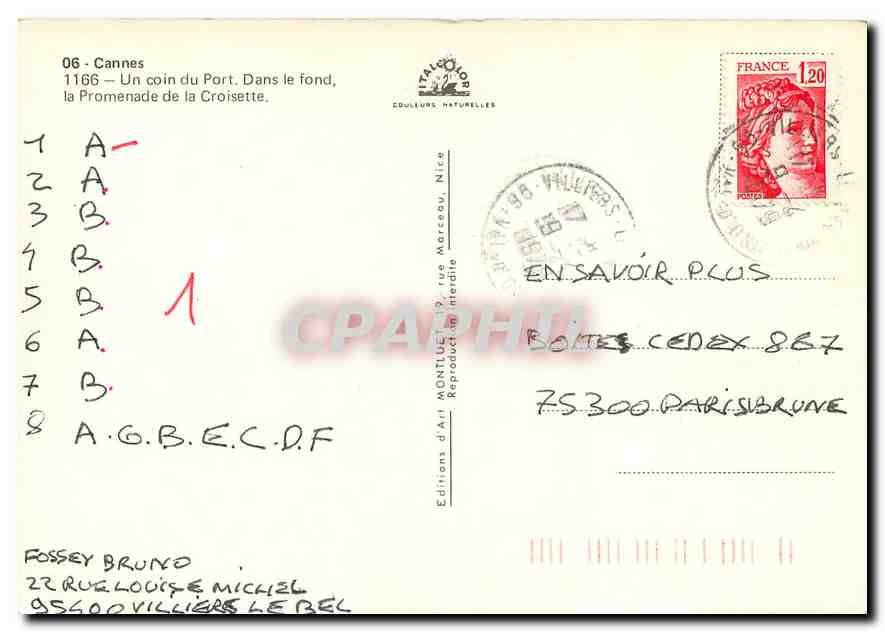 06 - Cannes
1166 — Un coin du Port. Dans le fond,
la Promenade de la Croisette.
ITALCOLOR
COULEURS NATURELLES
FRANCE 1,20
POSTES
1 A
2 A.
3 B.
4 B.
5 B.
6 A.
7 B.
8 A.G.B.E.C.D.F
1
FOSSEY BRUNO
22 RUE LOUISE MICHEL
95400 VILLIERS LE BEL
Editions d'Art MONTLUET 19, rue Marceau, Nice
Reproduction interdite
95 - VILLIERS
17
CPAPHIL
EN SAVOIR PLUS
BOITES CEDEX 867
75300 PARIS BRUNE